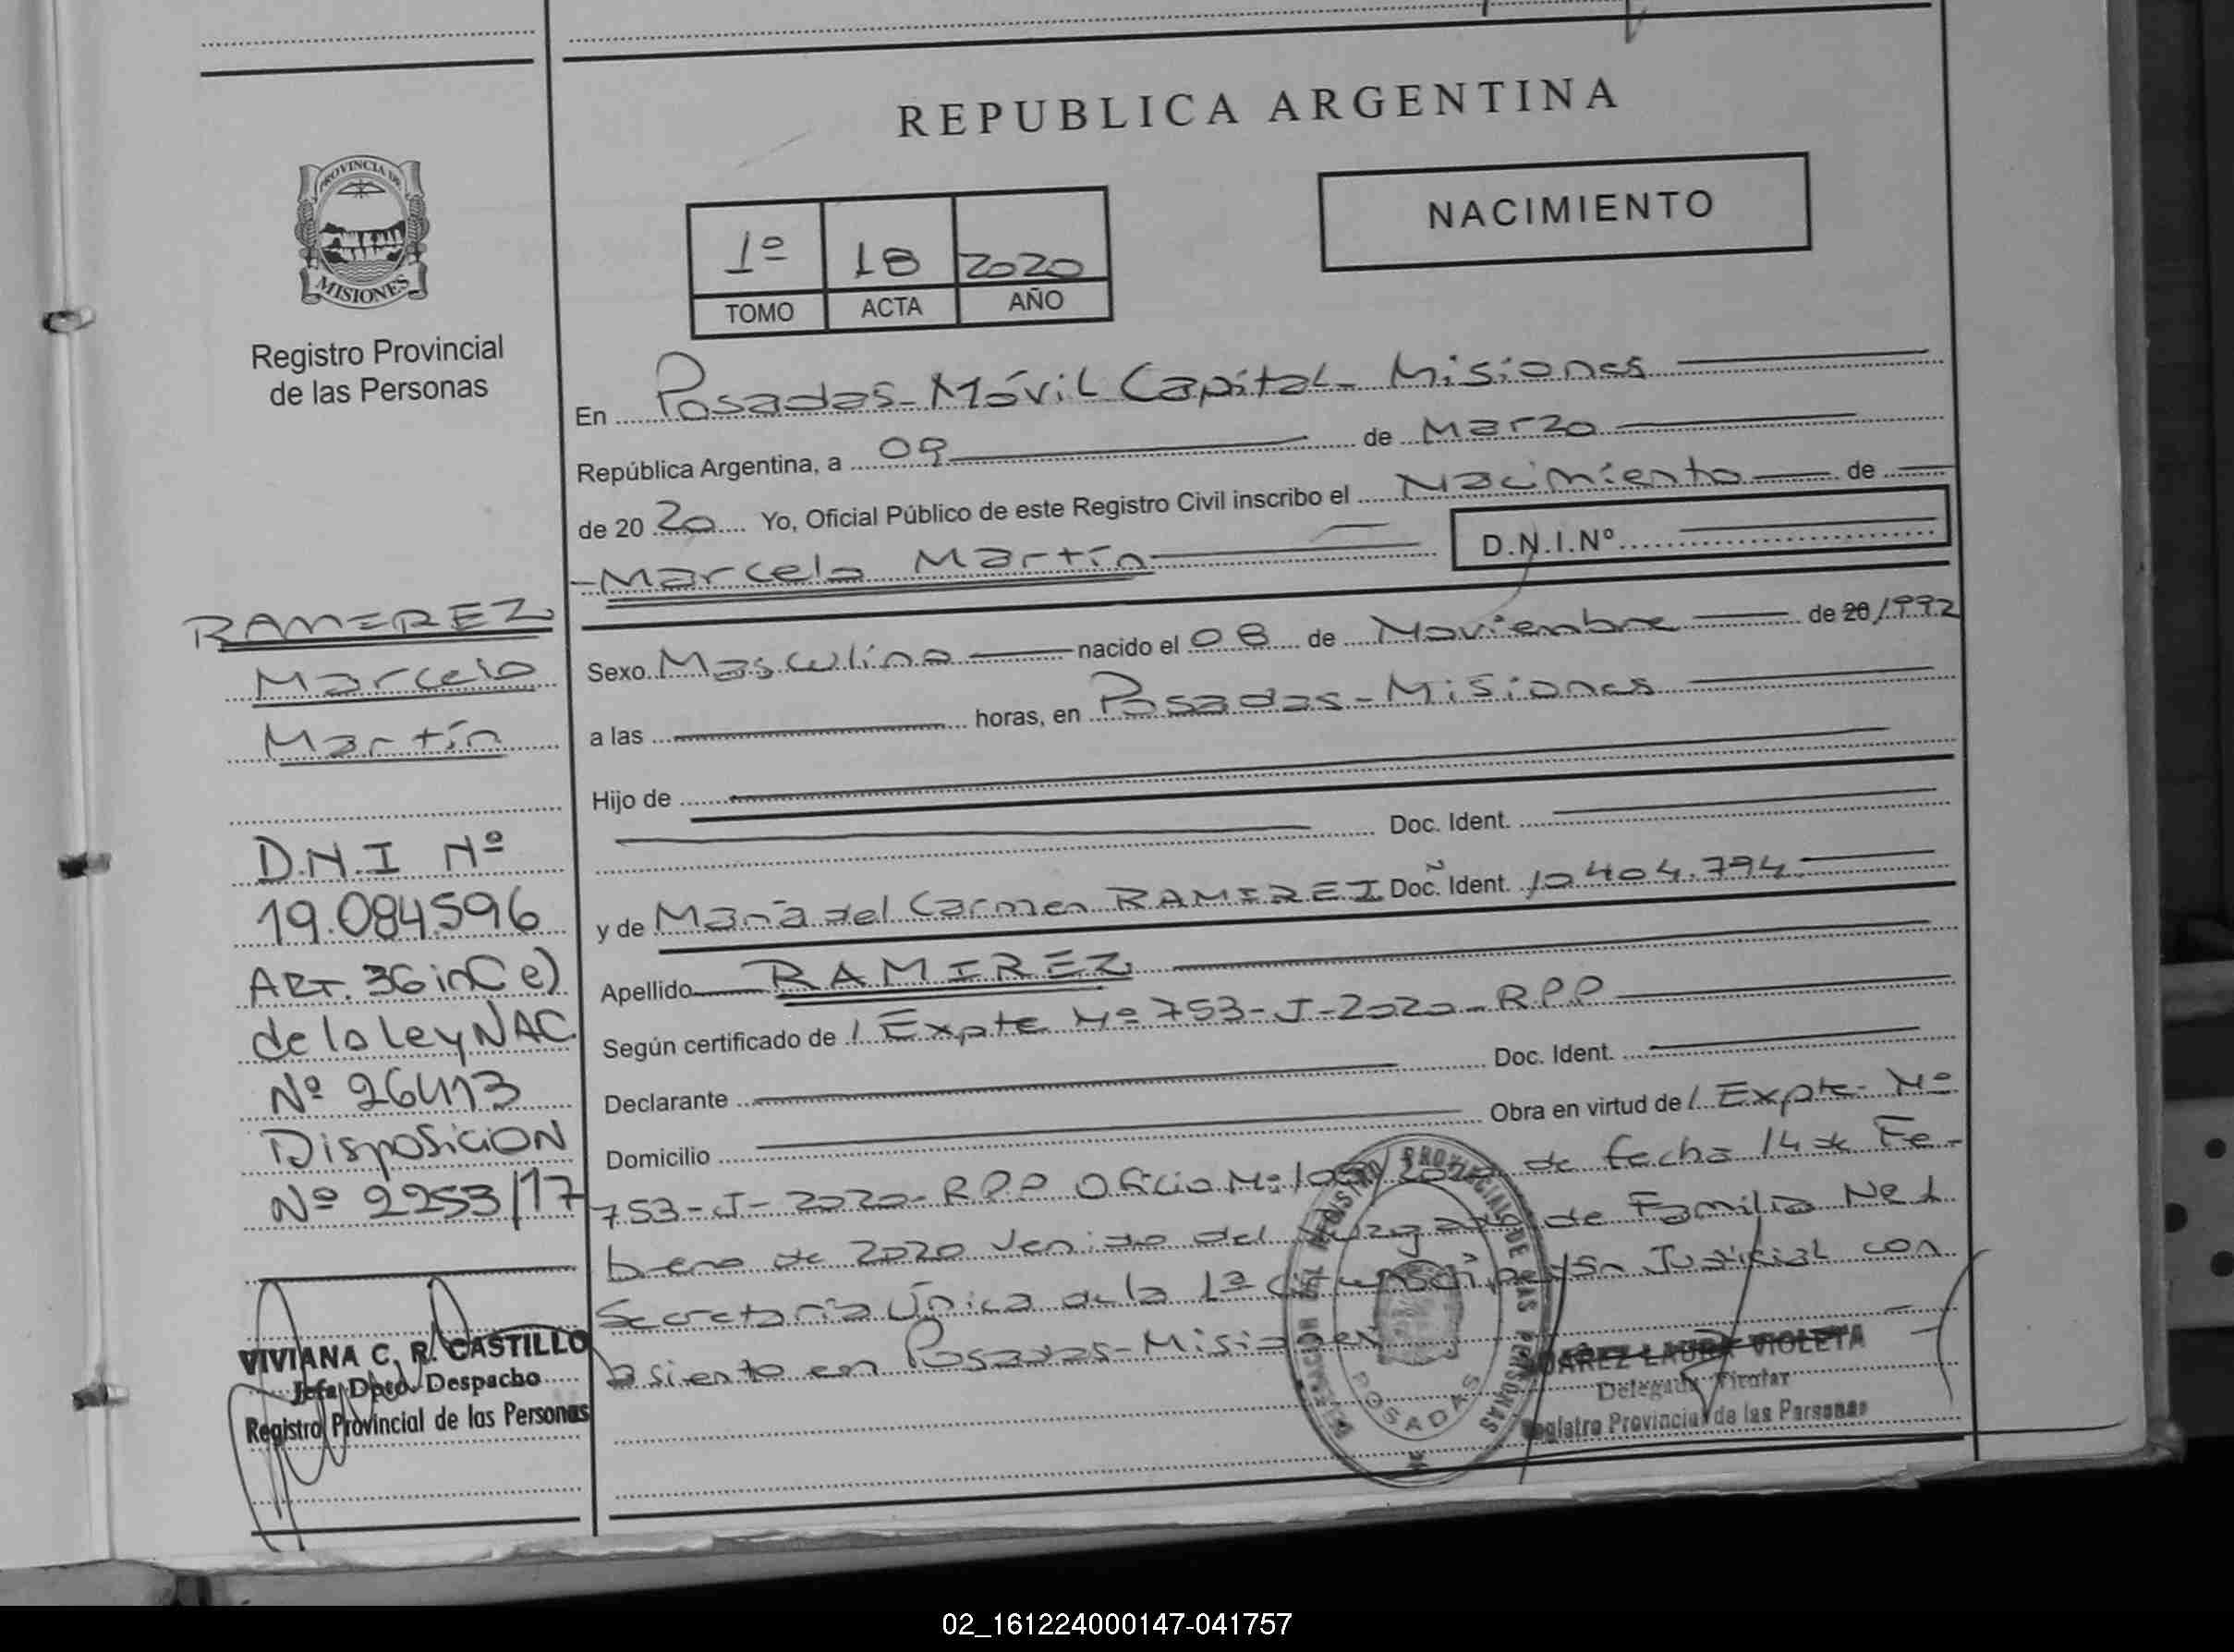 REPUBLICA ARGENTINA
PROVINCIA DE
MISIONES
Registro Provincial
de las Personas
1º 18 2020
TOMO ACTA AÑO
NACIMIENTO
En Posadas - Móvil Capital - Misiones
República Argentina, a 09 de Marzo
de 2020 Yo, Oficial Público de este Registro Civil inscribo el Nacimiento de
- Marcelo Martín
D.N.I.Nº
Sexo Masculino nacido el 08 de Noviembre de 20/1992
a las horas, en Posadas - Misiones
Hijo de
Doc. Ident.
y de María del Carmen RAMIREZ Doc. Ident. 10404.794
Apellido RAMIREZ
Según certificado de / Expte Nº 753-J-2020-RPP
Declarante Doc. Ident.
Domicilio Obra en virtud de / Expte. Nº
753-J-2020-RPP Oficio Nº de fecha 14 de Fe-
brero de 2020 venido del Juzgado de Familia Nº 1
Secretaría Única de la 1ª Circunscripción Judicial con
asiento en Posadas - Misiones
RAMIREZ
Marcelo
Martín
D.N.I Nº
19.084.596
ART. 36 inC e)
de la Ley NAC
Nº 26413
Disposición
Nº 2253/17
VIVIANA C. R. CASTILLO
Jefa Dpto. Despacho
Registro Provincial de las Personas
REGISTRO PROVINCIAL DE LAS PERSONAS
POSADAS
SUAREZ LAURA VIOLETA
Delegada Titular
Registro Provincial de las Personas
02_161224000147-041757